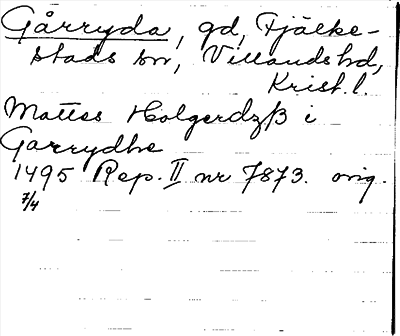 Gårryda, gd, Fjälke-
stads sn, Villands hd,
Krist. l.
Mattes Holgerdzß i
Garrydhe
1495 Rep. II nr 7873. orig.
7/4